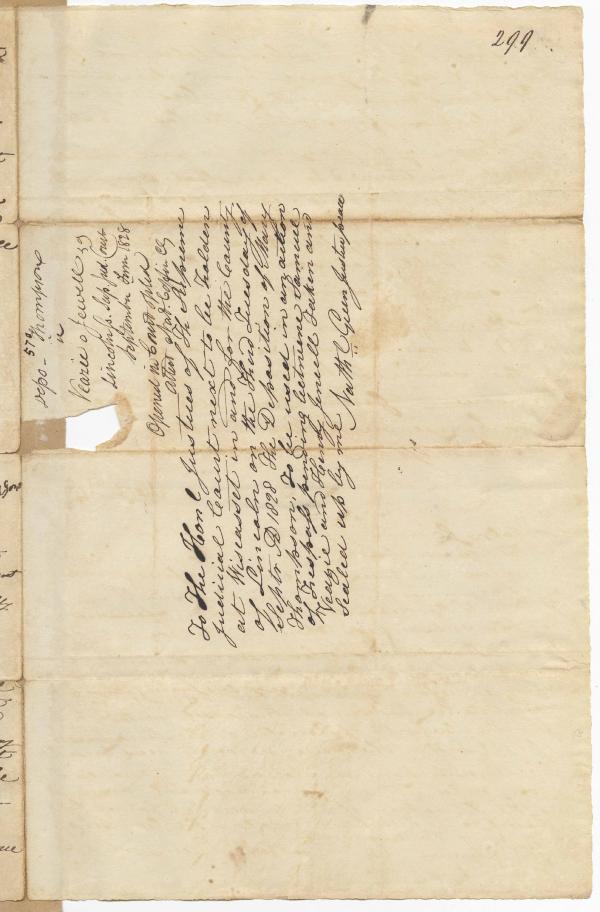 299
572
Depo - Thompson
in
Veazie v Jewell 39
Lincoln ss. Sup. Jud. Court
September Term 1828
Opened in Court & filed
Attest
To The Honl Justices of The Supreme
Judicial Court next to be holden
at Wiscasset in and for the County
of Lincoln on the Third Tuesday of
Septr AD 1828 The Deposition of Mary
Thompson To be used in an action
of Trespass pending between Samuel
Veazie and Henry Jewell Taken and
Sealed up by me Nathl Green Justice peace